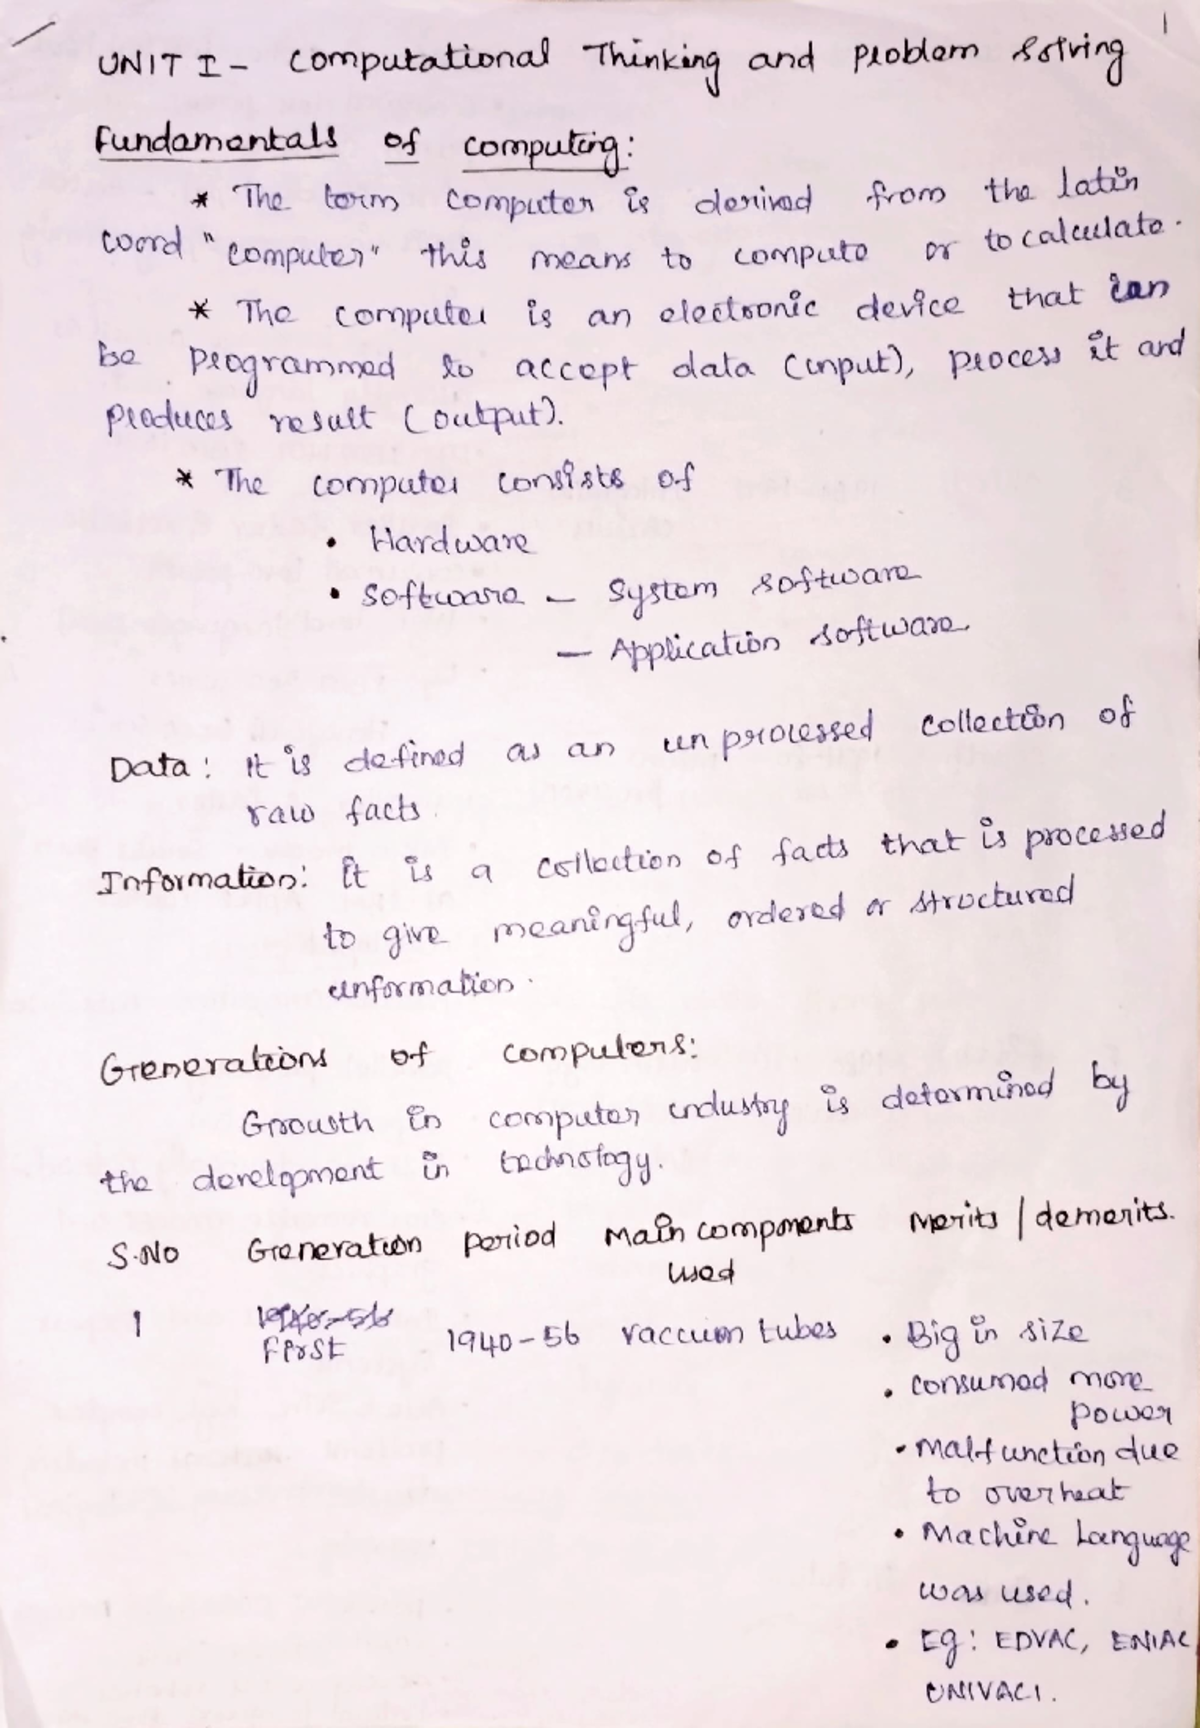 1
UNIT I - Computational Thinking and Problem Solving
Fundamentals of computing:
* The term computer is derived from the latin
word "computer" this means to compute or to calculate.
* The computer is an electronic device that can
be programmed to accept data (input), process it and
produces result (output).
* The computer consists of
• Hardware
• Software - System software
- Application software
Data: It is defined as an unprocessed collection of
raw facts.
Information: It is a collection of facts that is processed
to give meaningful, ordered or structured
information.
Generations of computers:
Growth in computer industry is determined by
the development in technology.
S.No Generation period Main components Merits / demerits.
used
1 1940-56
First 1940-56 vaccum tubes • Big in size
• consumed more
power
• Malfunction due
to overheat
• Machine Language
was used.
• Eg: EDVAC, ENIAC
UNIVAC1.